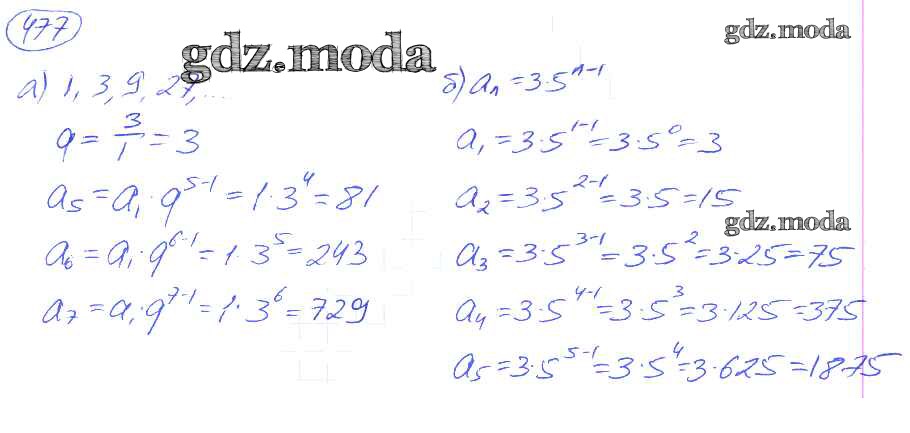 477
gdz.moda
gdz.moda
а) 1, 3, 9, 27, ...
q = 3/1 = 3
a₅ = a₁ · q⁵⁻¹ = 1 · 3⁴ = 81
a₆ = a₁ · q⁶⁻¹ = 1 · 3⁵ = 243
a₇ = a₁ · q⁷⁻¹ = 1 · 3⁶ = 729
б) aₙ = 3 · 5ⁿ⁻¹
a₁ = 3 · 5¹⁻¹ = 3 · 5⁰ = 3
a₂ = 3 · 5²⁻¹ = 3 · 5 = 15
gdz.moda
a₃ = 3 · 5³⁻¹ = 3 · 5² = 3 · 25 = 75
a₄ = 3 · 5⁴⁻¹ = 3 · 5³ = 3 · 125 = 375
a₅ = 3 · 5⁵⁻¹ = 3 · 5⁴ = 3 · 625 = 1875